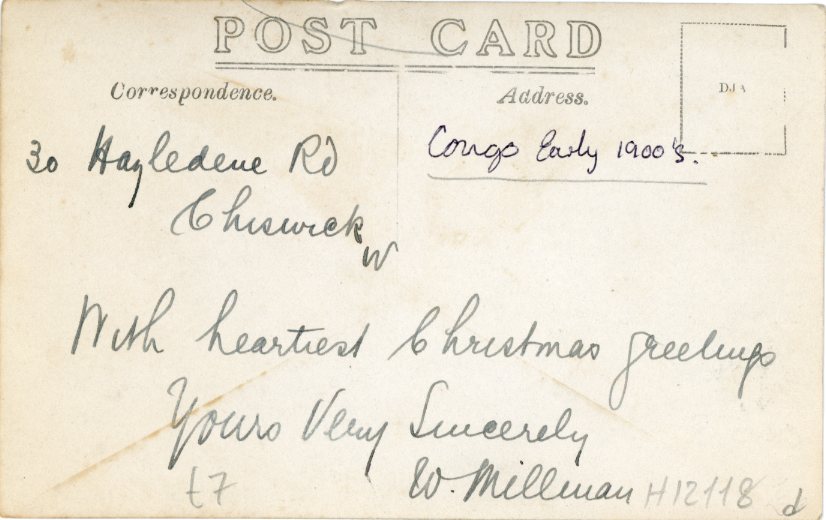 POST CARD
Correspondence.
Address.
30 Hazledene Rd
Chiswick
W
Congo Early 1900's.
With heartiest Christmas greetings
Yours Very Sincerely
W. Millman
£7
H12118
d